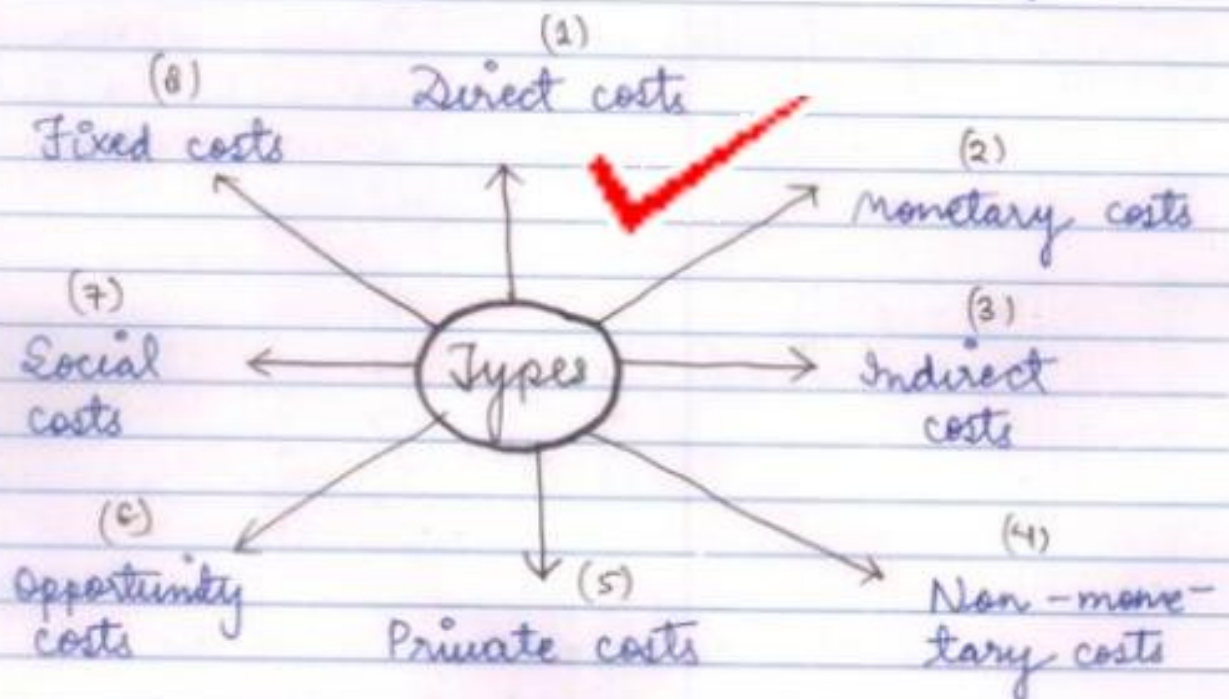 (1)
Direct costs
(2)
Monetary costs
(3)
Indirect
costs
(4)
Non-mone-
tary costs
(5)
Private costs
(6)
Opportunity
costs
(7)
Social
costs
(8)
Fixed costs
Types